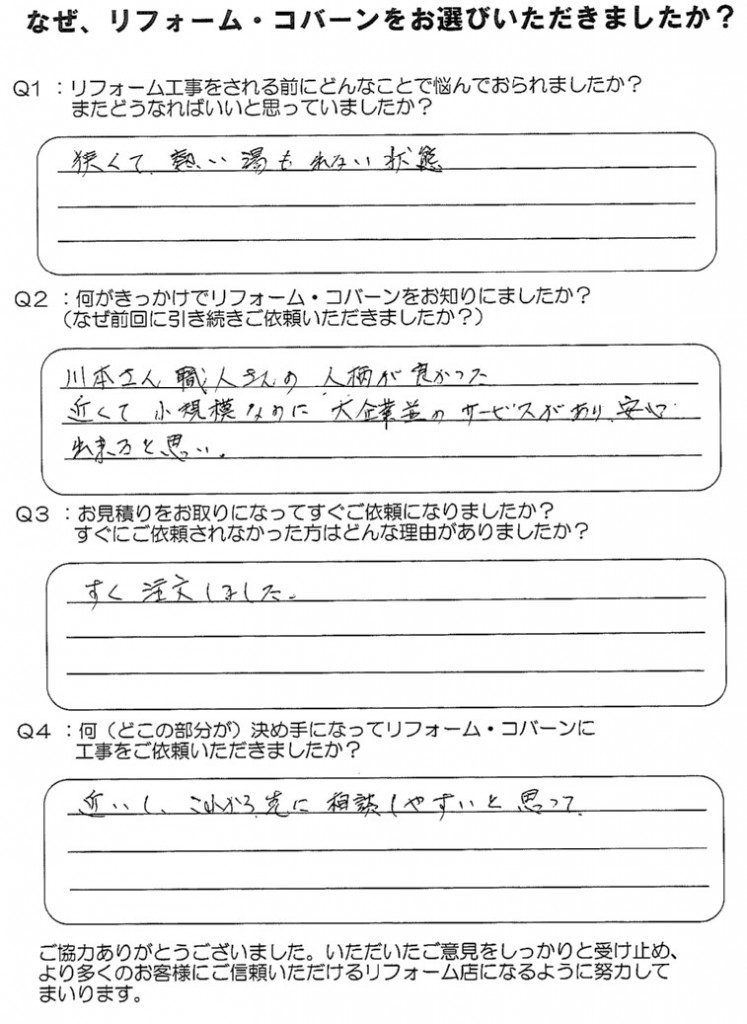 なぜ、リフォーム・コバーンをお選びいただきましたか？
Q1 ：リフォーム工事をされる前にどんなことで悩んでおられましたか？
またどうなればいいと思っていましたか？
狭くて、熱い湯もれない状態
Q2 ：何がきっかけでリフォーム・コバーンをお知りにましたか？
（なぜ前回に引き続きご依頼いただきましたか？）
川本さん 職人さんの 人柄が良かった
近くて 小規模なのに 大企業並のサービスがあり、安心
出来ると思い。
Q3 ：お見積りをお取りになってすぐご依頼になりましたか？
すぐにご依頼されなかった方はどんな理由がありましたか？
すく注文しました。
Q4 ：何（どこの部分が）決め手になってリフォーム・コバーンに
工事をご依頼いただきましたか？
近いし、これから先に 相談しやすいと思って
ご協力ありがとうございました。いただいたご意見をしっかりと受け止め、
より多くのお客様にご信頼いただけるリフォーム店になるように努力して
まいります。